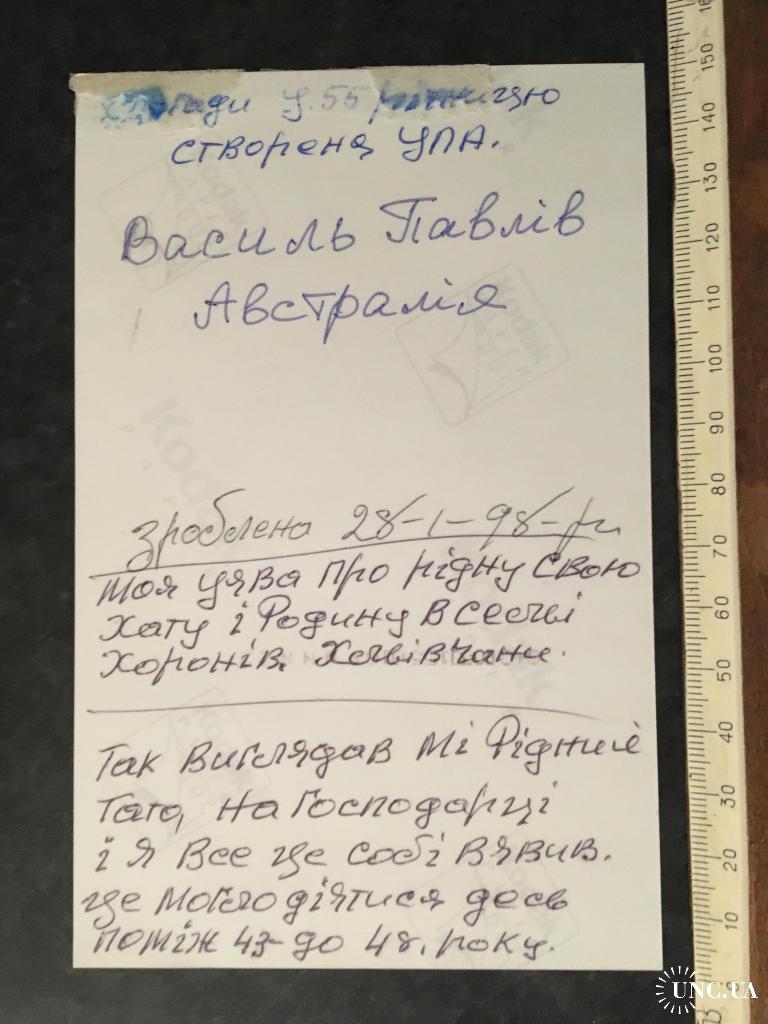 Спогади У. 55 річницю
створеня УПА.
Василь Павлів
Австралія
зроблена 28-1-98-р.
Моя уява про рідну свою
Хату і Родину в селі
Хоронів. Хлівчани.
Так виглядав Мій Рідний
Тато, на Господарці
і я все це собі вявив.
це могло діятися десь
поміж 43- до 48. року.
Kodak
Kodak
Kodak
10
20
30
40
50
60
70
80
90
100
110
120
130
140
150
UNC.UA